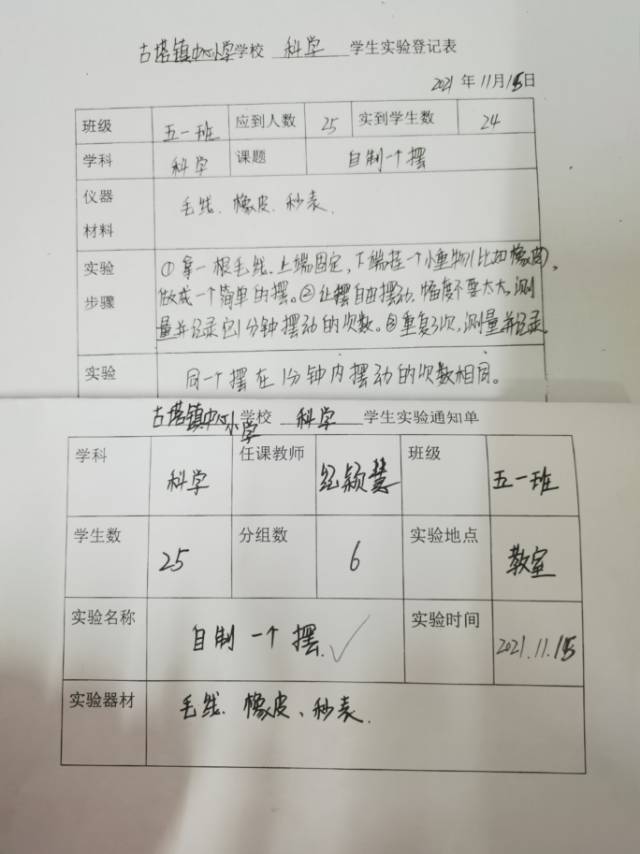 古塔镇中心小学学校 科学 学生实验登记表
2021年11月15日
班级 五一班 应到人数 25 实到学生数 24
学科 科学 课题 自制一个摆
仪器材料 毛线、橡皮、秒表、
实验步骤 ①拿一根毛线、上端固定，下端拴一个小重物(比如橡皮)，
做成一个简单的摆。②让摆自由摆动，幅度不要太大，测
量并记录它1分钟摆动的次数。③重复3次，测量并记录。
实验 同一个摆在1分钟内摆动的次数相同。
古塔镇中心小学学校 科学 学生实验通知单
学科 科学 任课教师 颖慧 班级 五一班
学生数 25 分组数 6 实验地点 教室
实验名称 自制一个摆 实验时间 2021.11.15
实验器材 毛线、橡皮、秒表.